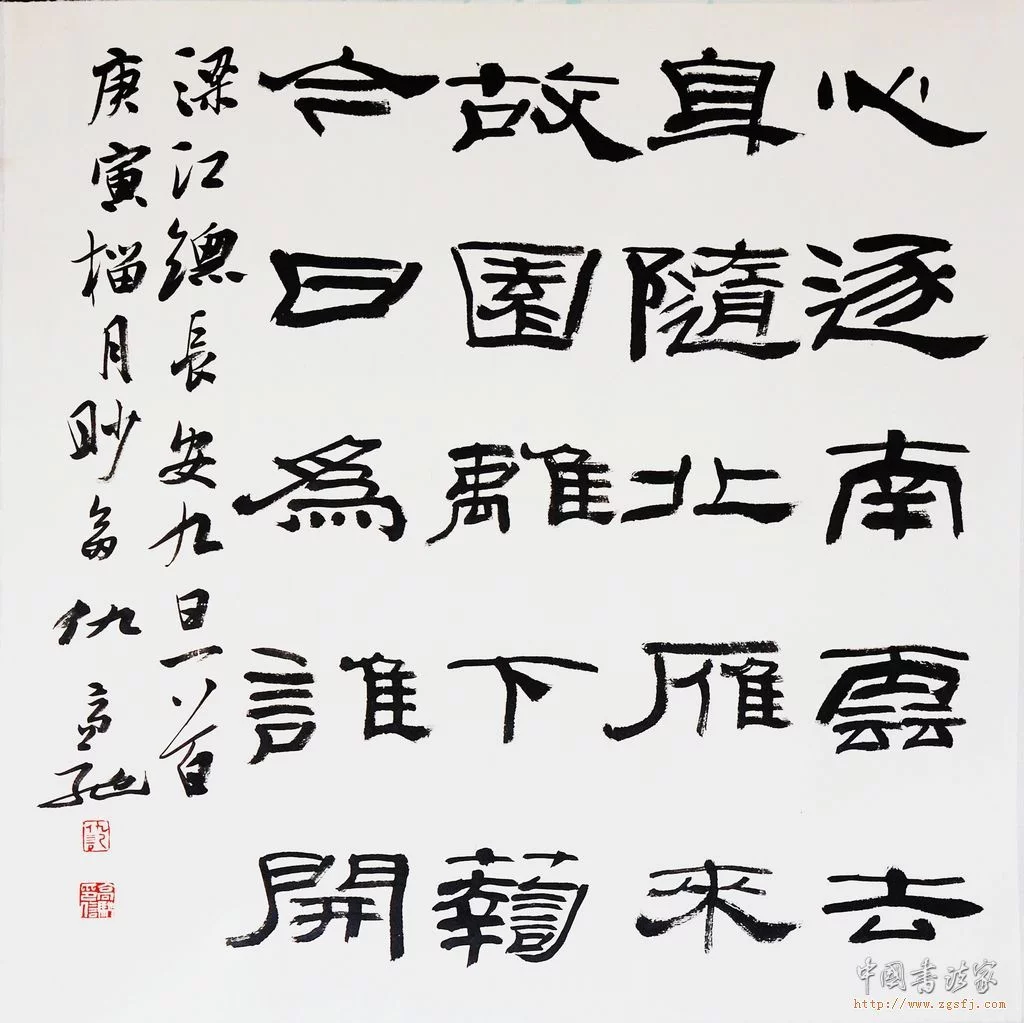 心逐南雲去
身隨北雁來
故園離下蘜
今日爲誰開
梁江總長安九日一首
庚寅榴月眇翁仇高馳
中國書法家
http://www.zgsfj.com/